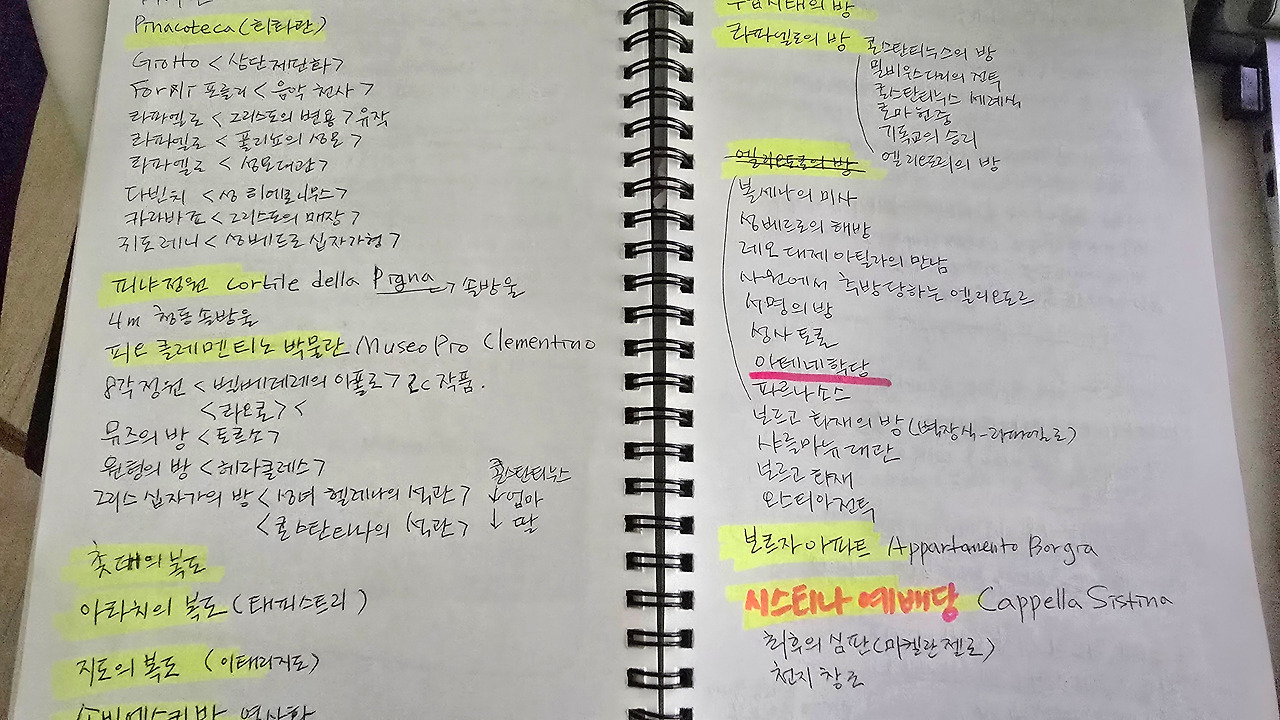 Pinacoteca (회화관)
Giotto <삼단제단화>
Forlir 포를리 <음악 천사>
라파엘로 <그리스도의 변용> 유작
라파엘로 <폴리뇨의 성모>
라파엘로 <성모대관>
다빈치 <성 히에로니무스>
카라바조 <그리스도의 매장>
귀도레니 <성베드로 십자가형>
피냐 정원 Cortile della Pigna > 솔방울
4m 청동 솔방울
피오 클레멘티노 박물관 Museo Pro Clementino
8각정원 <벨베데레의 아폴로> 2C 작품.
<라오콘> <
뮤즈의 방 <토르소>
원형의 방 <헤라클레스>
그리스 십자가의 방 <성녀 헬레나의 석관>
<콘스탄티나의 석관>
콘스탄티누스
↓ 엄마
↓ 딸
촛대의 복도
아라치의 복도 (태피스트리)
지도의 복도 (이태리지도)
소비에스키방
라파엘로의 방
콘스탄티누스의 방
밀비우스 다리의 전투
콘스탄티누스 세례식
로마 헌증
기독교의 승리
엘리오도리의 방
엘리오도로의 방
볼세나의 미사
성베드로의 해방
레오 대제 아틸라의 만남
사원에서 추방당하는 엘리오도르
서명의 방
성사 토론
아테네학당
파르나소스
보르고 화재의 방 (벽장식-라파엘로)
샤를마뉴 대관
보르고 화재
오스티아전투
보르자 아파트 Appartamento Borgia
시스티나 예배당 Cappella Sistina
최후의 심판 (미켈란젤로)
천지창조